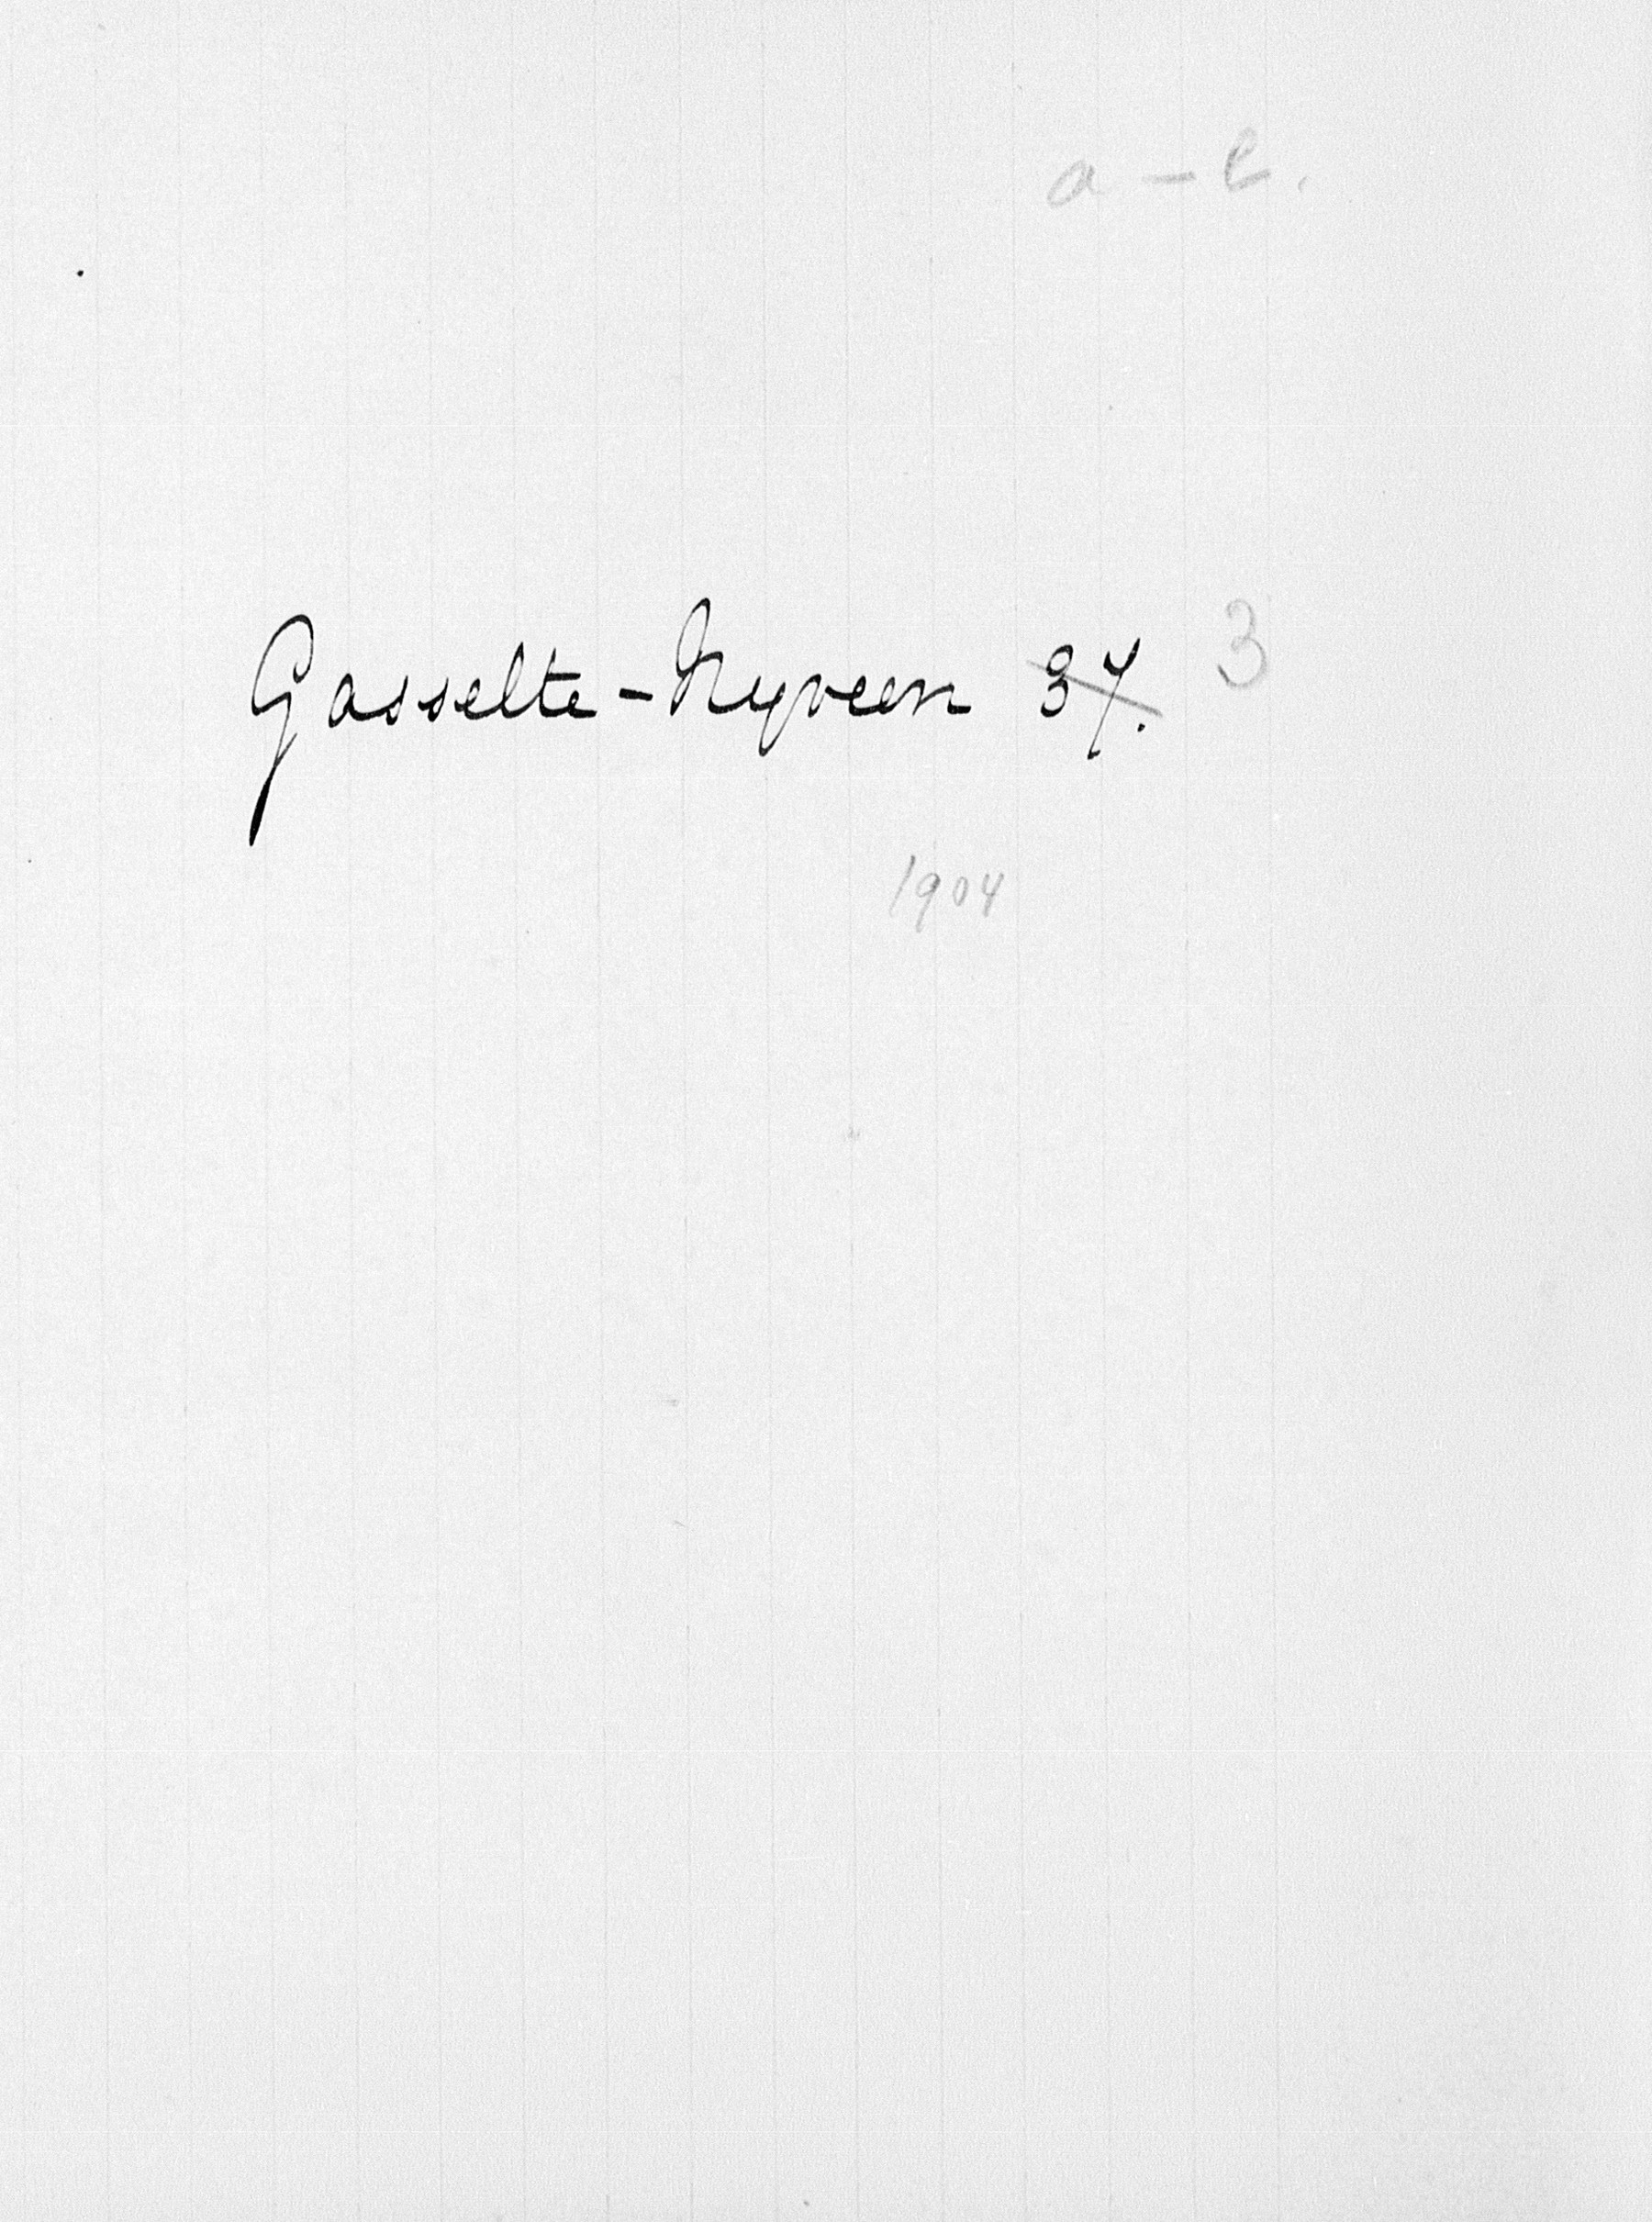 a - e.
Gasselte-Nyveen 37. 3
1904